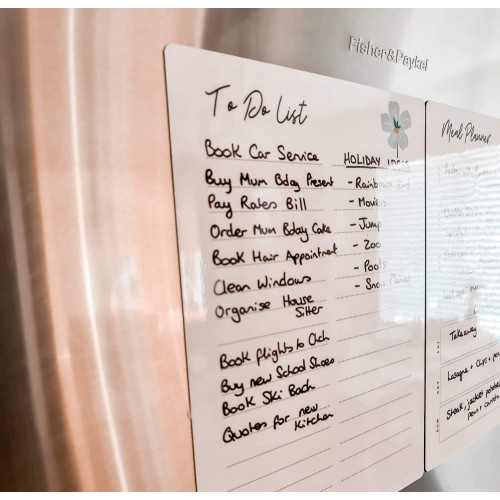 Fisher&Paykel
To Do List
Book Car Service
Buy Mum Bday Present
Pay Rates Bill
Order Mum Bday Cake
Book Hair Appointment
Clean Windows
Organise House
Sitter
Book flights to Chch
Buy new School Shoes
Book Ski Bach
Quotes for new
Kitchen
HOLIDAY IDEAS
- Rainbows End
- Movies
- Jump
- Zoo
- Pools
- Snow Planet
Meal Planner
Takeaway
Lasagne + Chips +
Steak, jacket potatoes